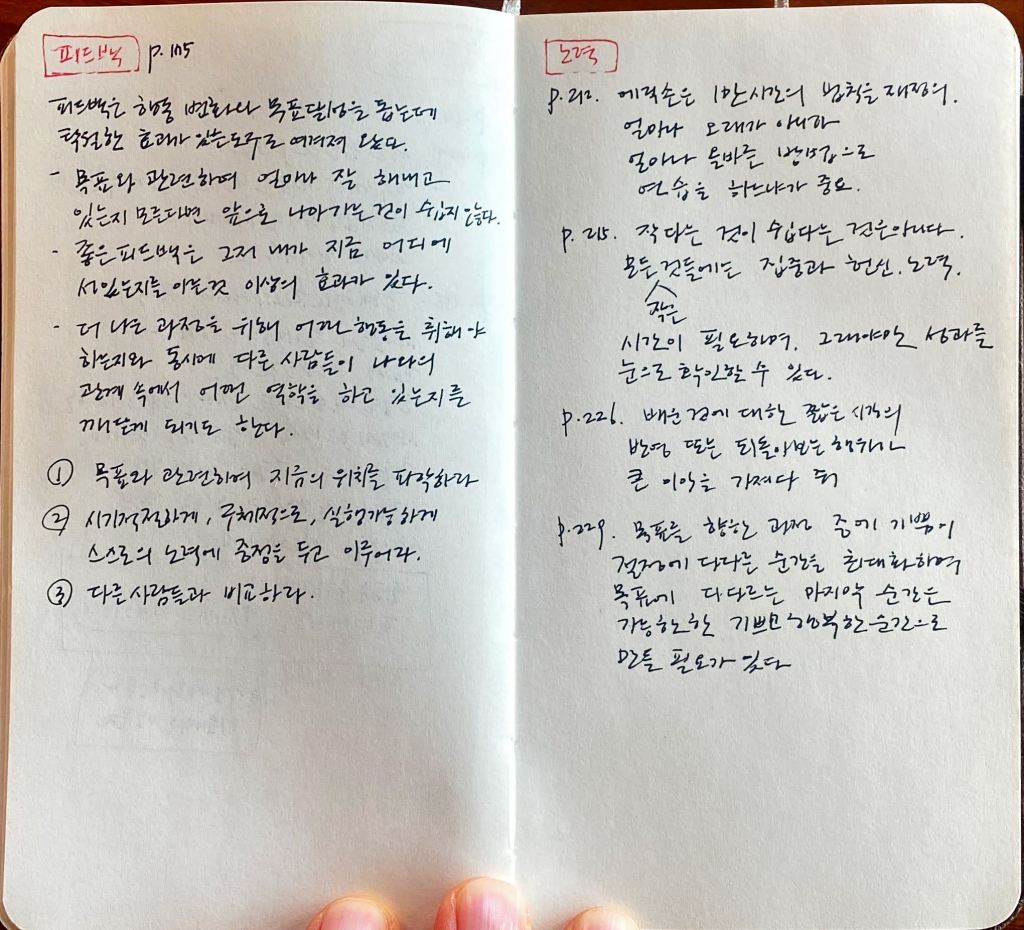 피드백 p.175
피드백은 행동 변화와 목표달성을 돕는데
탁월한 효과가 있는 도구로 여겨져 왔다.
- 목표와 관련하여 얼마나 잘 해내고
있는지 모른다면 앞으로 나아가는 것이 쉽지 않다.
- 좋은 피드백은 그저 내가 지금 어디에
서있는지를 아는 것 이상의 효과가 있다.
- 더 나은 과정을 위해 어떤 행동을 취해야
하는지와 동시에 다른 사람들이 나와의
관계 속에서 어떤 역할을 하고 있는지를
깨닫게 되기도 한다.
① 목표와 관련하여 지금의 위치를 파악하라
② 시기적절하게, 구체적으로, 실행가능하게
스스로의 노력에 중점을 두고 이루어라.
③ 다른 사람들과 비교하라.
노력
p.212. 에릭손은 1만 시간의 법칙을 재정의.
얼마나 오래가 아니라
얼마나 올바른 방법으로
연습을 하느냐가 중요.
p.215. 작다는 것이 쉽다는 것은 아니다.
모든 것들에는 집중과 헌신. 노력.
작은
시간이 필요하며, 그래야만 성과를
눈으로 확인할 수 있다.
p.226. 배운 것에 대한 짧은 시간의
반영 또는 되돌아보는 행위가
큰 이익을 가져다 줘
p.229. 목표를 향하는 과정 중에 기쁨이
절정에 다다른 순간을 최대화하여
목표에 다다르는 마지막 순간은
가능한한 기쁘고 행복한 순간으로
만들 필요가 있다